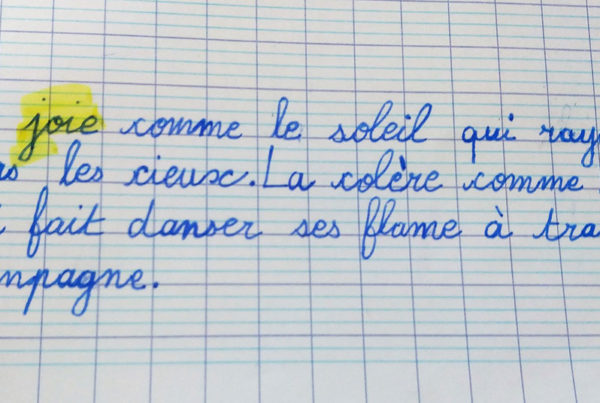 joie comme le soleil qui ray
s les cieux. La colère comme
fait danser ses flame à tra
mpagne.